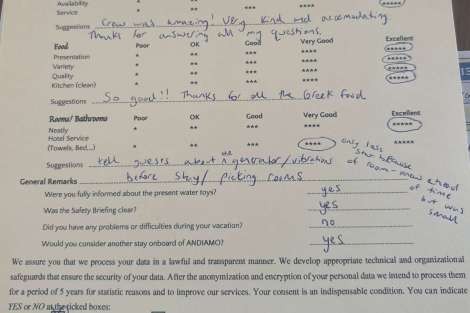 Availability * ** *** **** *****
Service
Suggestions Crew was amazing! Very kind and accomodating.
Thanks for answering all my questions.
Food Poor OK Good Very Good Excellent
Presentation * ** *** **** *****
Variety * ** *** **** *****
Quality * ** *** **** *****
Kitchen (clean) * ** *** **** *****
Suggestions So good!! Thanks for all the Greek food
Rooms/ Bathrooms Poor OK Good Very Good Excellent
Neatly * ** *** **** *****
Hotel Service
(Towels, Bed...) * ** *** **** *****
only less
star because
of room - knew ahead
of time
but was
small
Suggestions tell guests about the generator/vibrations
before stay/ picking rooms
General Remarks
Were you fully informed about the present water toys? yes
Was the Safety Briefing clear? yes
Did you have any problems or difficulties during your vacation? no
Would you consider another stay onboard of ANDIAMO? yes
We assure you that we process your data in a lawful and transparent manner. We develop appropriate technical and organizational
safeguards that ensure the security of your data. After the anonymization and encryption of your personal data we intend to process them
for a period of 5 years for statistic reasons and to improve our services. Your consent is an indispensable condition. You can indicate
YES or NO at the ticked boxes: